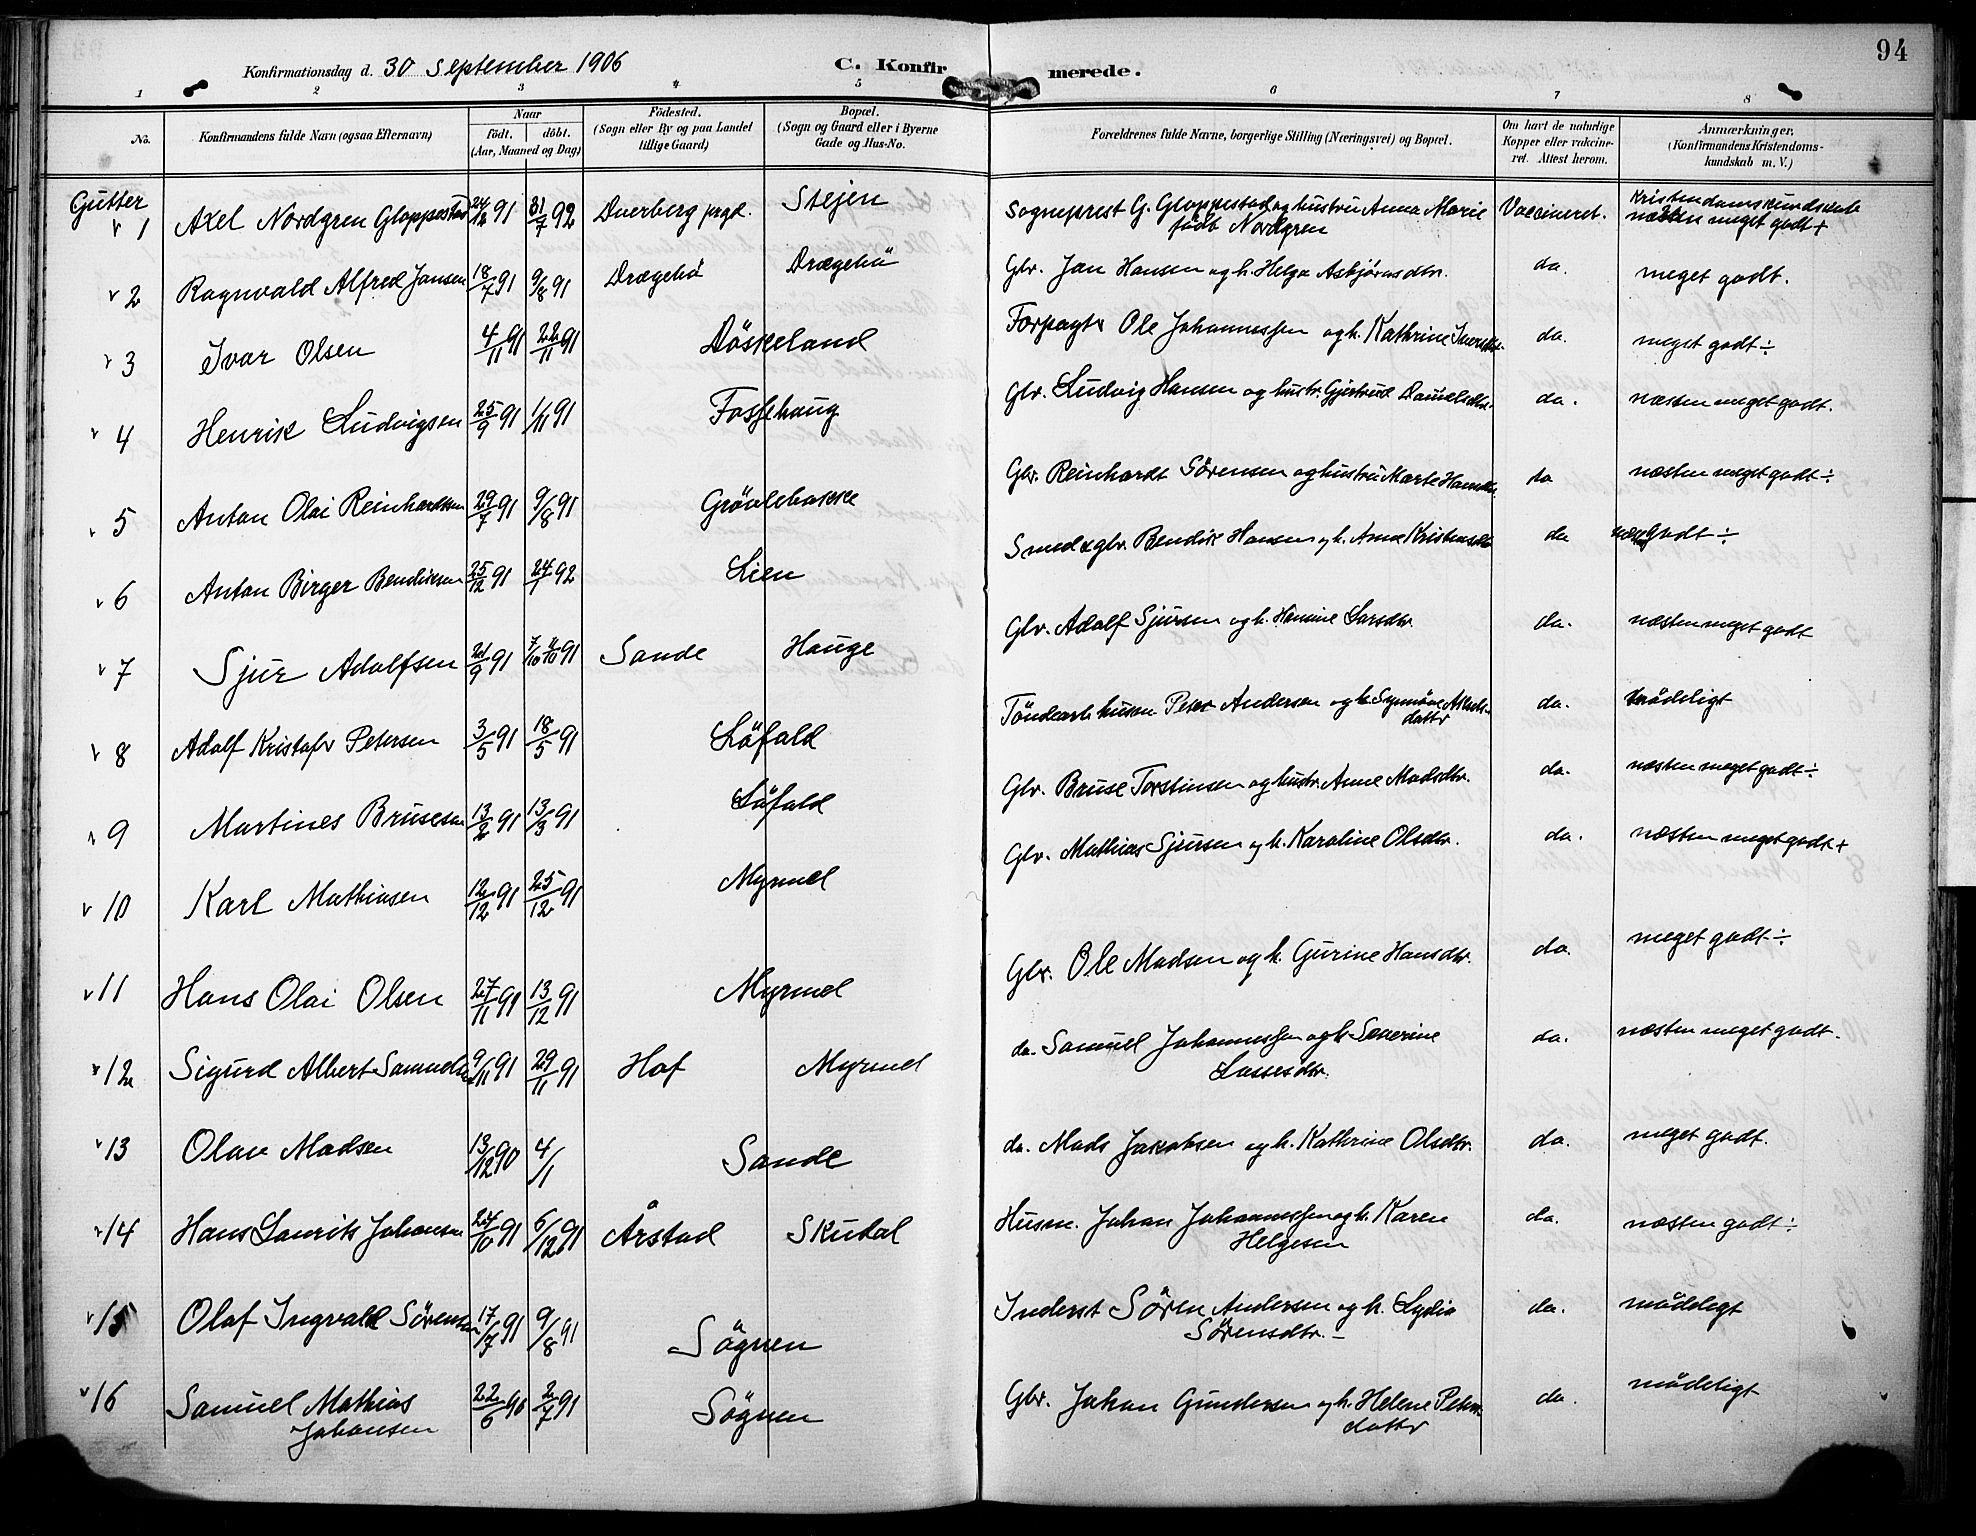 94
Konfirmationsdag d. 30 September 1906
C. Konfir merede.
1 2 3 4 5 6 7 8
No.
Konfirmandens fulde Navn (ogsaa Efternavn)
Naar
födt. döbt.
(Aar, Maaned og Dag)
Födested.
(Sogn eller By og paa Landet
tillige Gaard)
Bopæl.
(Sogn og Gaard eller i Byerne
Gade og Hus-No.
Forældrenes fulde Navne, borgerlige Stilling (Næringsvei) og Bopæl.
Om havt de naturlige
Kopper eller vaccine-
ret. Attest herom.
Anmærkninger,
(Konfirmandens Kristendoms-
kundskab m. V.)
Gutter
1 Axel Nordgren Gloppestad 24/12 91 31/7 92 Duerberg prgd. Stejen Sogneprest G. Gloppestad og hustru Anna Marie Vaccineret. Kristendomskundskab
født Nordgren næsten meget godt +
2 Ragnvald Alfred Jansen 18/7 91 9/8 91 Drægebø Drægebø Gbr. Jan Hansen og h. Helga Asbjørnsdtr. da. meget godt.
3 Ivar Olsen 4/11 91 22/11 91 Döskeland Forpagtr Ole Johannessen og h. Kathrine da. meget godt ÷
4 Henrik Ludvigsen 25/9 91 1/11 91 Fossehaug Gbr. Ludvig Hansen og hustr. Gjertrud Danielsdtr. da. næsten meget godt.
5 Anton Olai Reinhardtsen 29/7 91 9/8 91 Grövlebakke Gbr. Reinhardt Sörensen og hustru Marte da næsten meget godt ÷
6 Anton Birger Bendiksen 25/12 91 24/1 92 Lien Smed & gbr. Bendik Hansen og h. Anna Kristensdtr da godt ÷
7 Sjur Adolfsen 21/9 91 91 Sande Hauge Gbr. Adolf Sjursen og h. Hansine Larsdtr. da. næsten meget godt
8 Adolf Kristofer Petersen 3/5 91 18/5 91 Löfald Peter Andersen og h. Synnöve da. mådeligt
dattr
9 Martines Brusesen 13/2 91 13/3 91 Löfald Gbr. Bruse Torstinsen og hustr. Anne Madsdtr. da. næsten meget godt ÷
10 Karl Mathiasen 12/12 91 25/12 91 Myrmel Gbr. Mathias Sjursen og h. Karoline Olsdtr. da. næsten meget godt +
11 Hans Olai Olsen 27/11 91 13/12 91 Myrmel Gbr. Ole Madsen og h. Gurine Hansdtr. da. meget godt ÷
12 Sigurd Albert Samuelsen 9/11 91 29/11 91 Hof Myrmel da. Samuel Johannessen og h. Severine da. næsten meget godt.
Lassesdtr.
13 Olav Madsen 13/12 90 4/1 Sande da. Mads Jakobsen og h. Kathrine Olsdtr. da. meget godt.
14 Hans Laurits Johansen 24/10 91 6/12 91 Årstad Skudal Husm. Johan Johannessen og h. Karen da. næsten godt ÷
Helgesen
15 Olaf Ingvald Sörensen 17/7 91 9/8 91 Sögnen Inderst Sören Andersen og h. Lydia da. mådeligt
Sörensdtr. –
16 Samuel Mathias 22/6 90 2/7 91 Sögnen Gbr. Johan Gundersen og h. Helene Peters- da. mådeligt
Johansen dattr